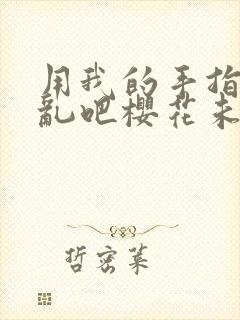 用我的手指
亂吧櫻花未
哲密莱